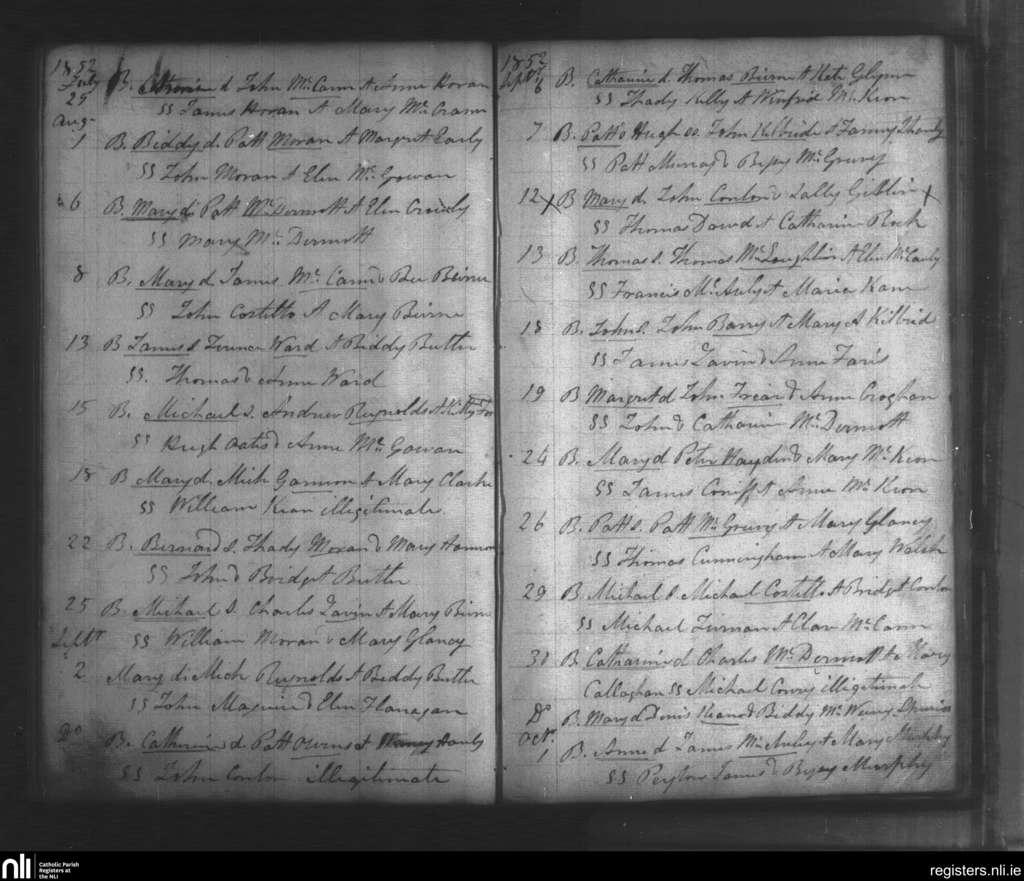 1852
July
25 B. Catherine d John McCann & Anne Horan
SS James Horan & Mary McCrann
Aug.
1 B. Biddy d. Patt Moran & Margret Early
SS John Moran & Elen McGowan
6 B. Mary d. Patt McDermott & Elen
SS Mary McDermott
8 B. Mary d James McCann & Bee Beirne
SS John Costillo & Mary Beirne
13 B James s Terence Ward & Biddy Butler
SS. Thomas & Anne Ward
15 B. Michael s. Andrew Reynolds & Kitty Fox
SS Hugh Oates & Anne McGowan
18 B Mary d. Mich Gannon & Mary Clarke
SS William Kean illigitimate
22 B. Bernard s. Thady Moran & Mary
SS John & Bridget Butler
25 B. Michael s. Charles Gavin & Mary Birne
SS William Moran & Mary Glancy
Septr
2 Mary d. Mich Reynolds & Biddy Butler
SS John Maguire & Elen Flanagan
Do B. Catherine d Patt Owens &
SS John Conlon illigitimate
1852
Septr 6 B. Catharine d. Thomas Birne & Kate Glynn
SS Thady Kelly & Winfrid McKeon
7 B. Patt & Hugh ss. John Kilbride & Fanny
SS Patt Murray & Bessy McGrury
12 x B Mary d. John Conlon & Sally Giblin x
SS Thomas Dowd & Catharine Rock
13 B. Thomas s. Thomas McLoughlin & Elen McCauly
SS Francis McAuly & Maria Kane
18 B. John s. John Barry & Mary A Kilbrid
SS James Gavin & Anne Faris
19 B Margret d John & Anne Croghan
SS John & Catharine McDermott
24 B. Mary d Peter Hayden & Mary McKeon
SS James Conniff & Anne McKeon
26 B. Patt s. Patt McGrury & Mary Glancy
SS Thomas Cunningham & Mary Walsh
29 B. Michael s Michael Costillo & Bridget Conlon
SS Michael & Clare McCann
30 B. Catharine d Charles McDermott & Mary
Callaghan SS Michael Conry illigitimate
Do B. Mary d Denis Kean & Biddy McWeeny
Octr.
1 B. Anne d James McAuley & Mary
SS James & Bessy Murphy
nli
Catholic Parish
Registers at
the NLI
registers.nli.ie